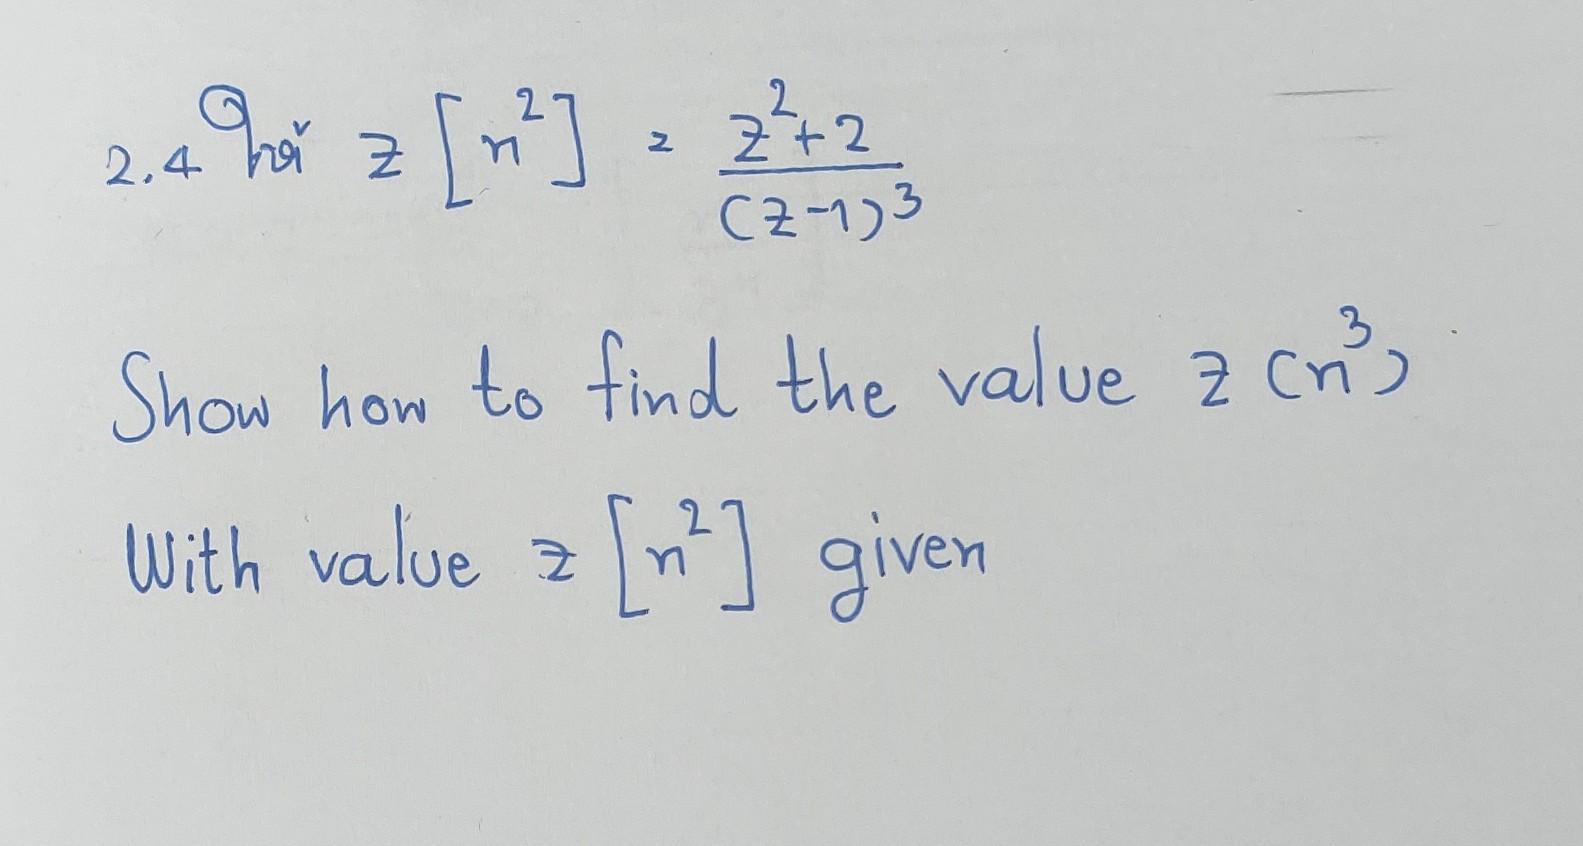 2.4 ให้ z [n²] = z²+2 / (z-1)³
Show how to find the value z (n³)
With value z [n²] given